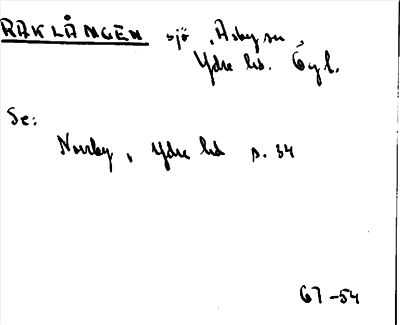 RAKLÅNGEN sjö, Asby sn,
Ydre hd. Ög l.
Se:
Norrby, Ydre hd s. 34
67-54